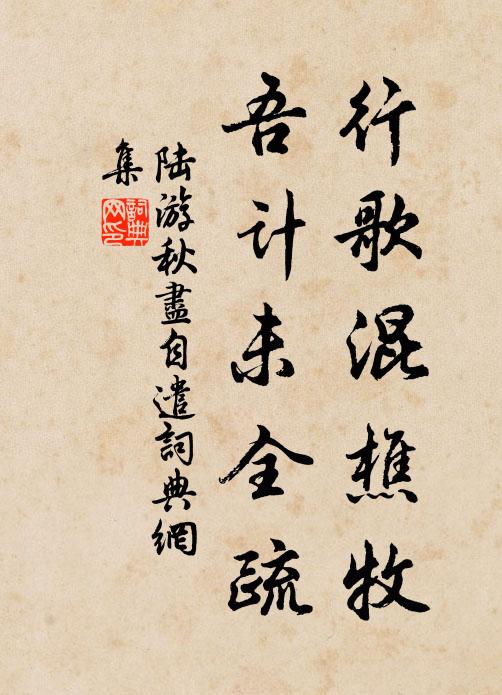 行歌混樵牧
吾计未全疏
陆游秋盡自遣詞典網
集
詞典
网印